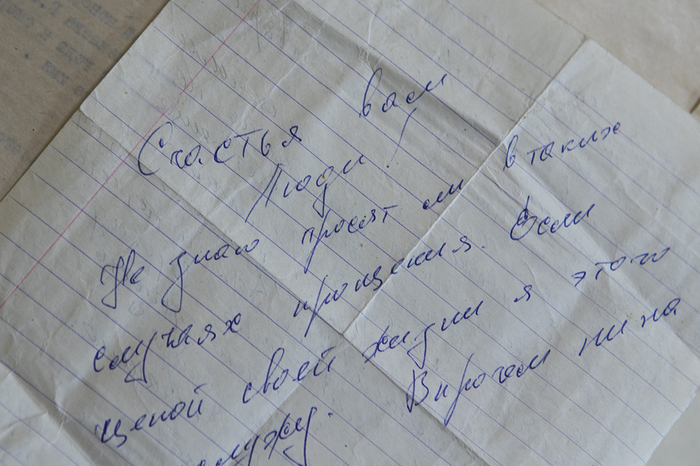 Счастья вам
Люди!
Не знаю просят ли в таких
случаях прощения. Если
ценой своей жизни я этого
служу. Впрочем ни на